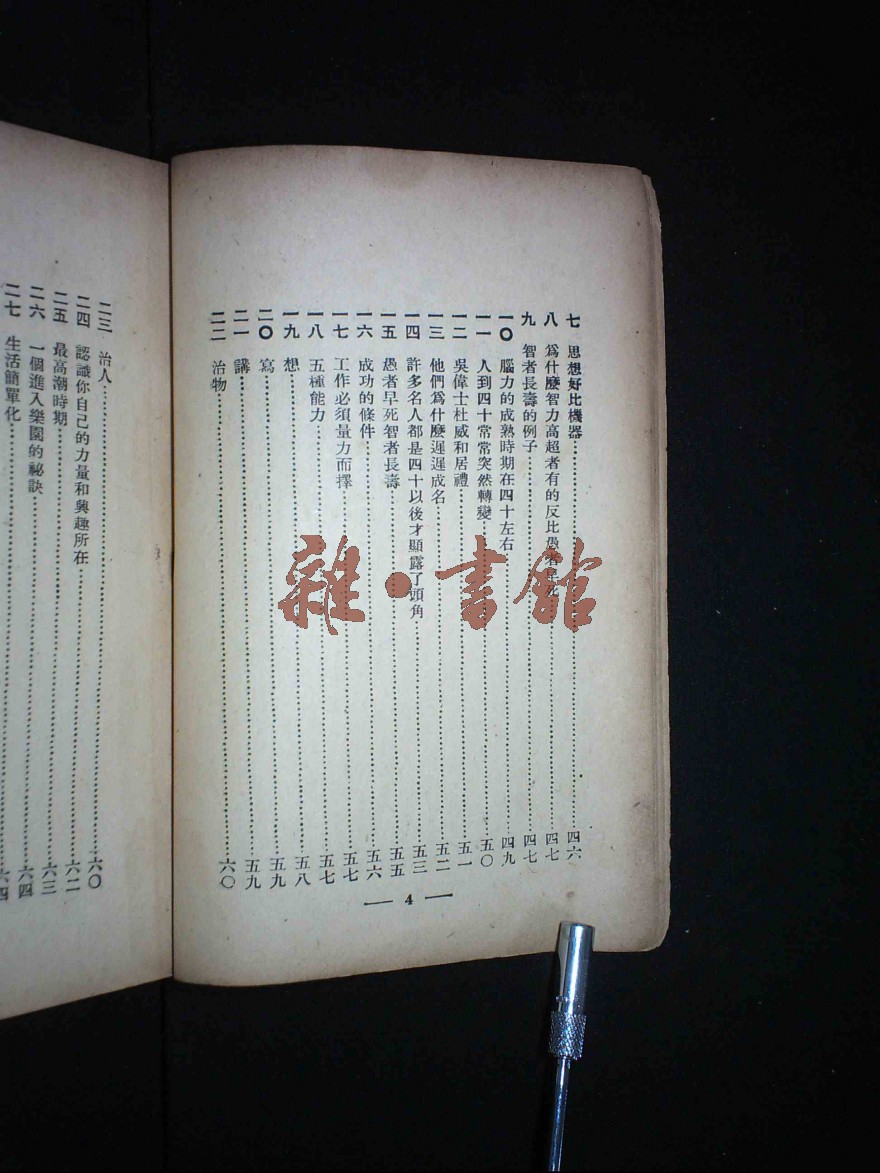 七　思想好比機器………四六
八　為什麼智力高超者有的反比愚者早死………四七
九　智者長壽的例子………四七
一〇　腦力的成熟時期在四十左右………四九
一一　人到四十常常突然轉變………五〇
一二　吳偉士杜威和居禮………五一
一三　他們為什麼遲遲成名………五二
一四　許多名人都是四十以後才顯露了頭角………五三
一五　愚者早死智者長壽………五五
一六　成功的條件………五六
一七　工作必須量力而擇………五七
一八　五種能力………五八
一九　想………五九
二〇　寫………五九
二一　講………五九
二二　治物………六〇
4
二三　治人………六〇
二四　認識你自己的力量和興趣所在………六二
二五　最高潮時期………六三
二六　一個進入樂園的祕訣………六四
二七　生活簡單化………六四
雜·書館